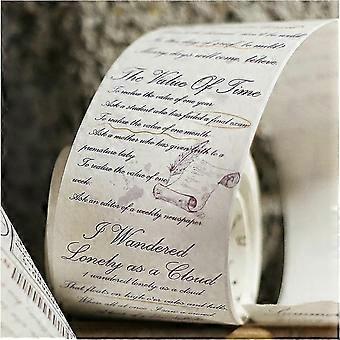 Many days will come, believe.
The Value Of Time
To realize the value of one year
Ask a student who has failed a final exam
To realize the value of one month.
Ask a mother who has given birth to a
premature baby
To realize the value of one
week.
Ask an editor of a weekly newspaper
I Wandered
Lonely as a Cloud
I wandered lonely as a cloud
That floats on high o'er vales and hills
When all at once I saw a crowd